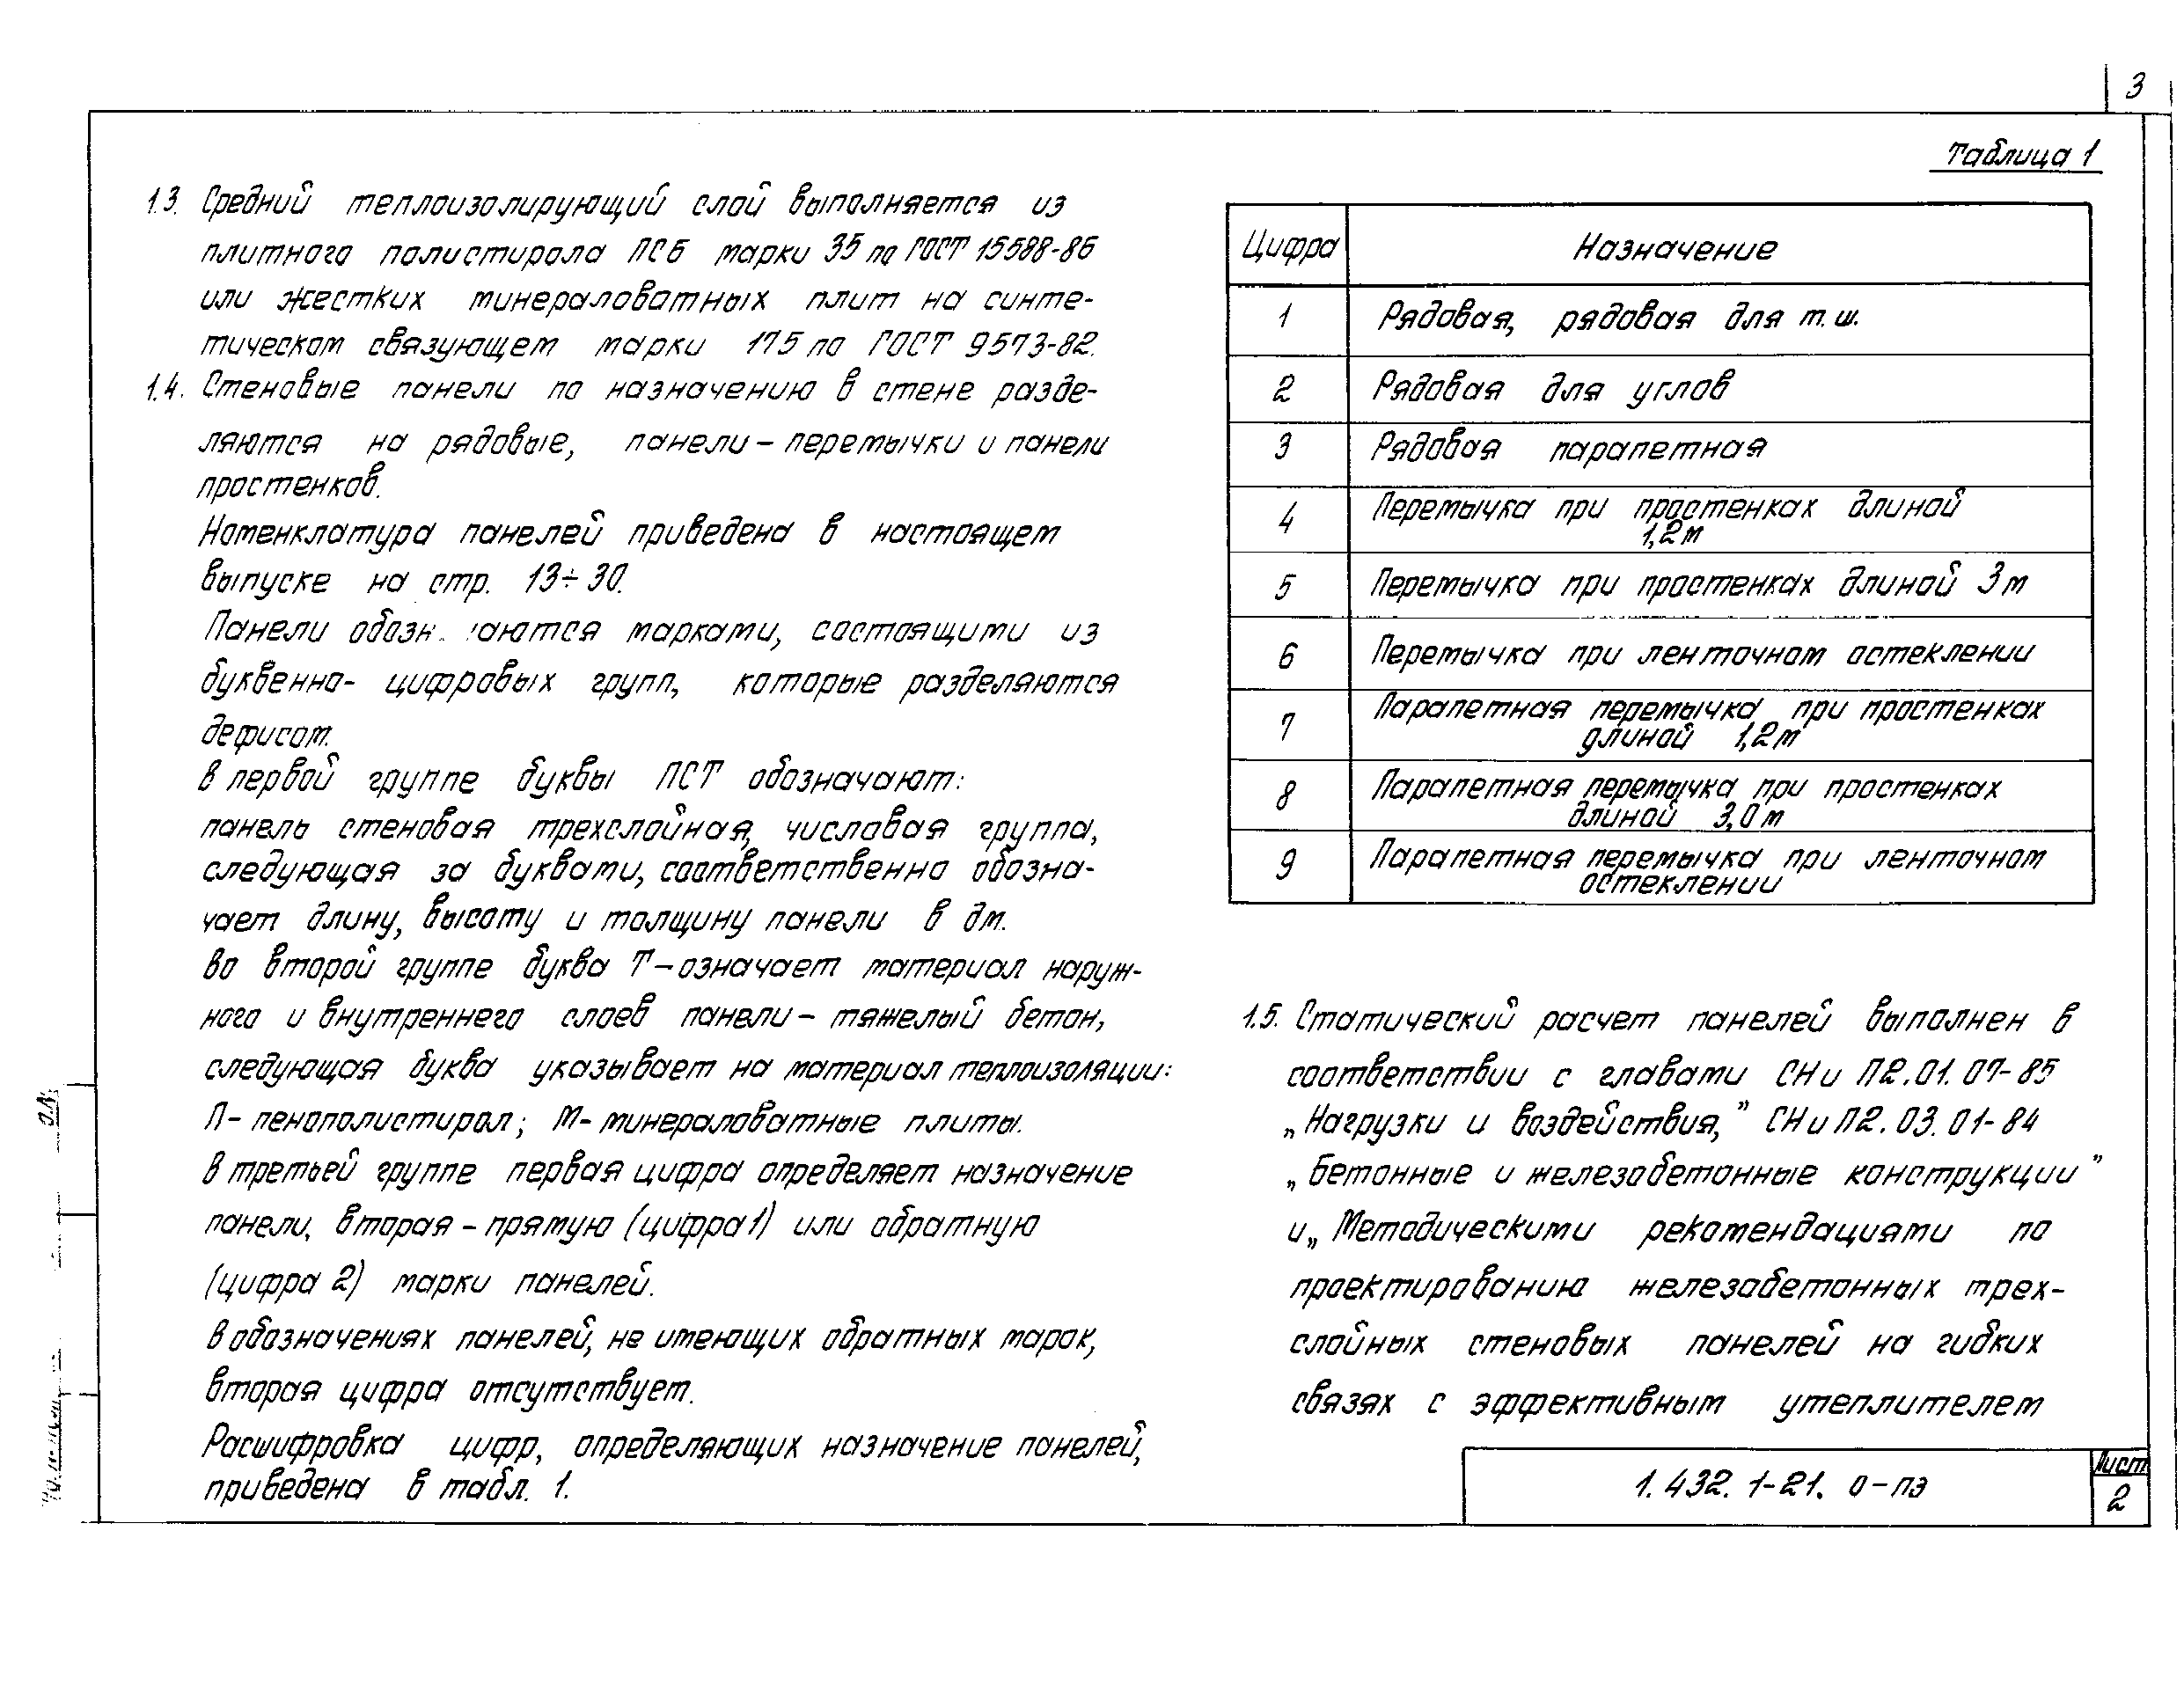 3
1.3. Средний теплоизолирующий слой выполняется из
плитного полистирола ПСБ марки 35 по ГОСТ 15588-86
или жестких минераловатных плит на синте-
тическом связующем марки 175 по ГОСТ 9573-82.
1.4. Стеновые панели по назначению в стене разде-
ляются на рядовые, панели - перемычки и панели
простенков.
Номенклатура панелей приведена в настоящем
выпуске на стр. 13÷30.
Панели марками, состоящими из
буквенно- цифровых групп, которые разделяются
дефисом.
В первой группе буквы ПСТ обозначают:
панель стеновая трехслойная, числовая группа,
следующая за буквами, соответственно обозна-
чает длину, высоту и толщину панели в дм.
Во второй группе буква Т - означает материал наруж-
ного и внутреннего слоев панели - тяжелый бетон,
следующая буква указывает на материал теплоизоляции:
П- пенополистирол; М- минераловатные плиты.
В третьей группе первая цифра определяет назначение
панели, вторая - прямую (цифра 1) или обратную
(цифра 2) марки панелей.
В обозначениях панелей, не имеющих обратных марок,
вторая цифра отсутствует.
Расшифровка цифр, определяющих назначение панелей,
приведена в табл. 1.
Таблица 1
Цифра Назначение
1 Рядовая, рядовая для т.ш.
2 Рядовая для углов
3 Рядовая парапетная
4 Перемычка при простенках длиной
1,2м
5 Перемычка при простенках длиной 3м
6 Перемычка при ленточном остеклении
7 Парапетная перемычка при простенках
длиной 1,2м
8 Парапетная перемычка при простенках
длиной 3,0м
9 Парапетная перемычка при ленточном
остеклении
1.5. Статический расчет панелей выполнен в
соответствии с главами СНиП2.01.07-85
„Нагрузки и воздействия,” СНиП2.03.01-84
„Бетонные и железобетонные конструкции”
и „Методическими рекомендациями по
проектированию железобетонных трех-
слойных стеновых панелей на гибких
связях с эффективным утеплителем
1.432.1-21. 0-ПЗ
Лист
2